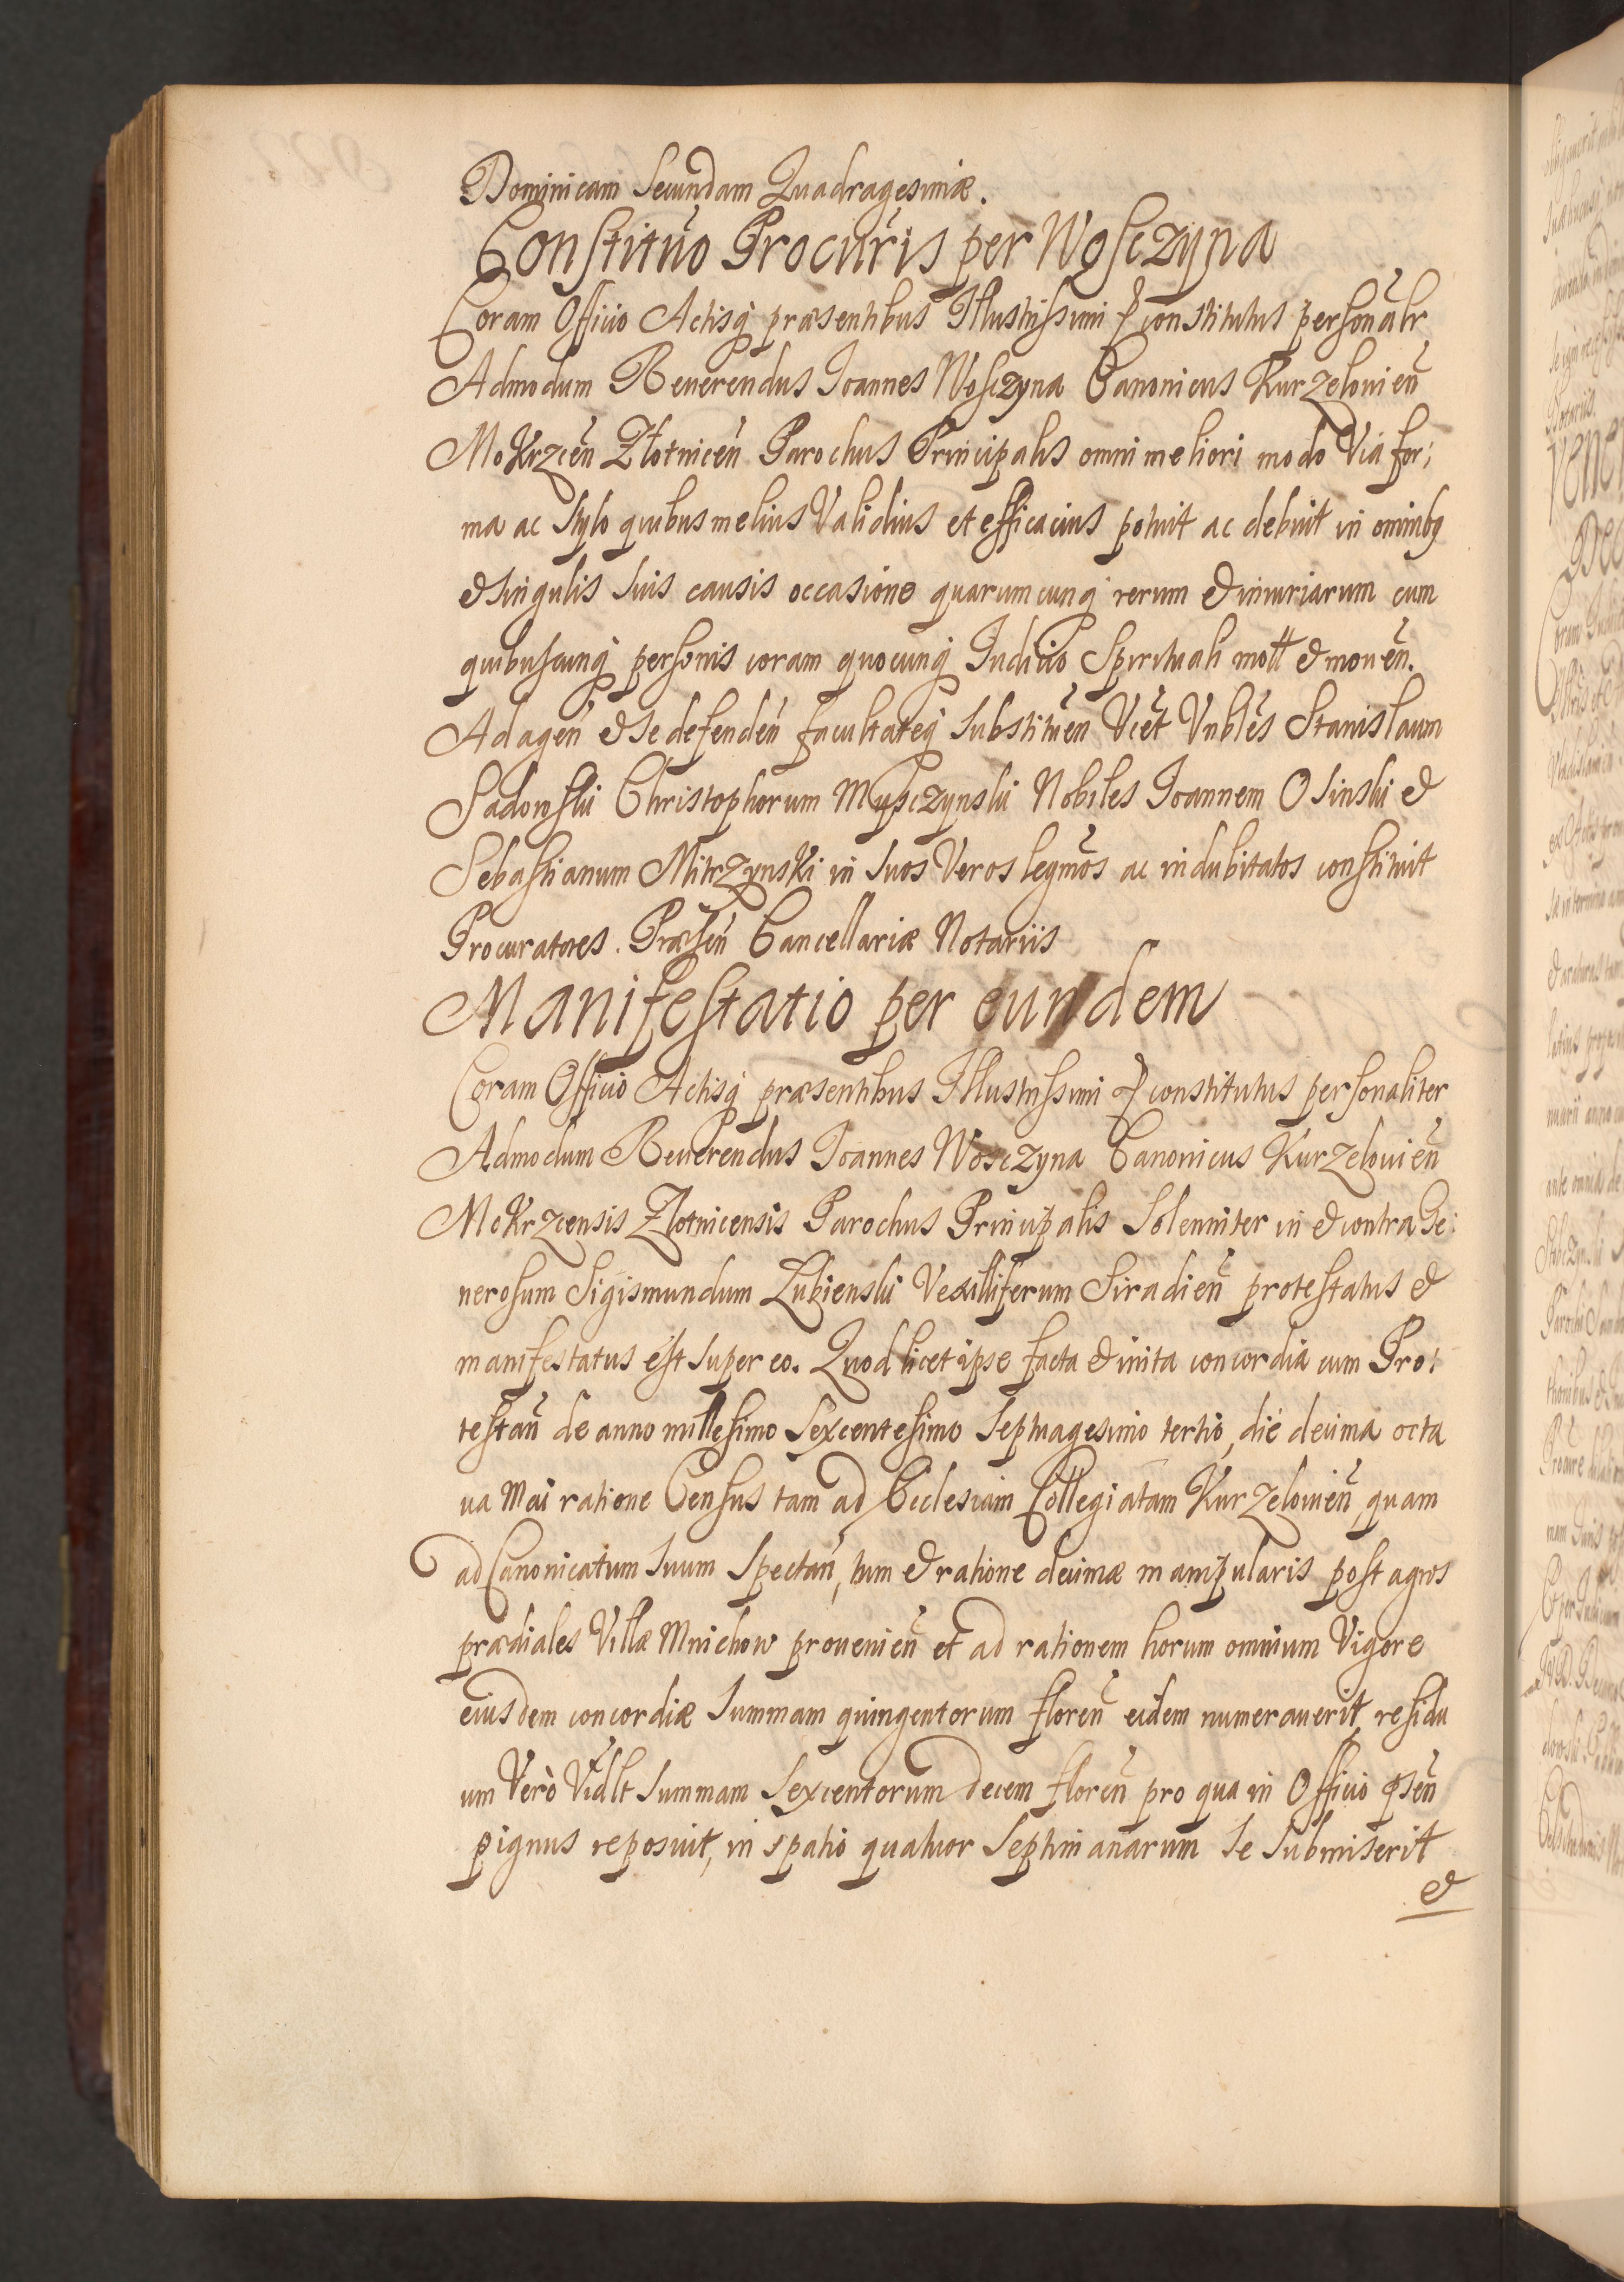 Dominicam Secundam Quadragesimæ.
Constituo Procuris per Wosczyna
Coram Officio Actisq præsentibus Illustrissimi & constitutus personalr
Admodum Reuerendus Ioannes Wosczyna Canonicus Kurzelouien
Mokrzcen Złotnicen Parochus Principalis omni meliori modo Via for;
ma ac stylo quibus melius Validius et efficacius potuit ac debuit in omnibg
& singulis suis causis occasione quarumcunq rerum & iniuriarum cum
quibuscunq personis coram quocunq Iudicio Spirituali mott & mouen.
Ad agen & se defenden facultateq substituen Vict Vnbles Stanislaum
Sadowski Christophorum Mysczynski Nobiles Ioannem Osinski &
Sebastianum Mitrzynski in suos Veros legmos ac indubitatos constituit
Procuratores. Præsen Cancellariæ Notariis
Manifestatio per eundem
Coram Officio Actisq præsentibus Illustrissimi & constitutus personaliter
Admodum Reuerendus Ioannes Wosczyna Canonicus Kurzelouien
Mokrzcensis Zlotnicensis Parochus Principalis Solenniter in & contra Ge:
nerosum Sigismundum Łubienski Vexilliferum Siradien protestatus &
manifestatus est super eo. Quod licet ipse facta & inita concordia cum Pro:
testan de anno millesimo Sexcentesimo Septuagesimo tertio, die decima octa
ua Mai ratione Census tam ad Ecclesiam Collegiatam Kurzelouien, quam
ad Canonicatum suum Spectan, tum & ratione decimæ manipularis post agros
prædiales Villæ Mnichow prouenien et ad rationem horum omnium Vigore
eiusdem concordiæ summam quingentorum floren eidem numerauerit, residu
um Verò Vidlt summam Sexcentorum decem floren pro qua in Officio psen
pignus reposuit, in spatio quatuor Septimanarum se submiserit
&